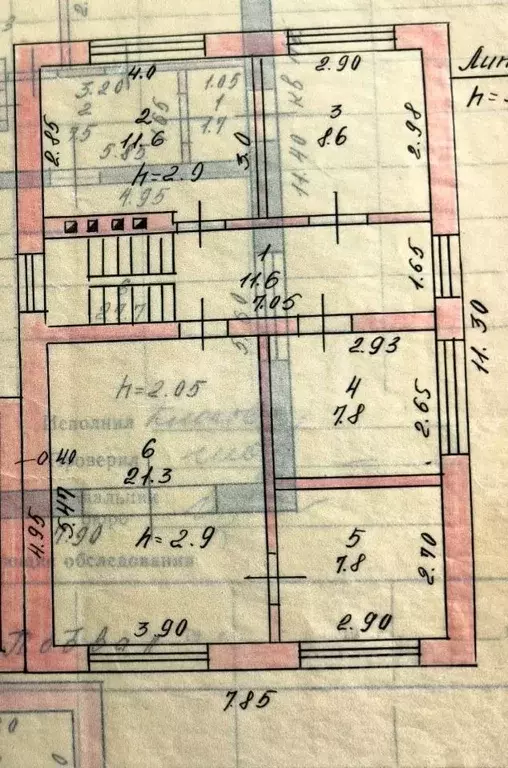 4.0
2.90
Лит
h=
3.20
2
1.05
1
1.7
2
11.6
3
8.6
2.85
5.85
3.0
2.98
11.40
кв
h=2.9
4.95
1
11.6
7.05
1.65
11.30
2.93
h=2.05
4
7.8
2.65
Исполнил
6
21.3
0.40
5.47
4.95
7.90
h=2.9
5
7.8
2.70
обследования
3.90
2.90
7.85